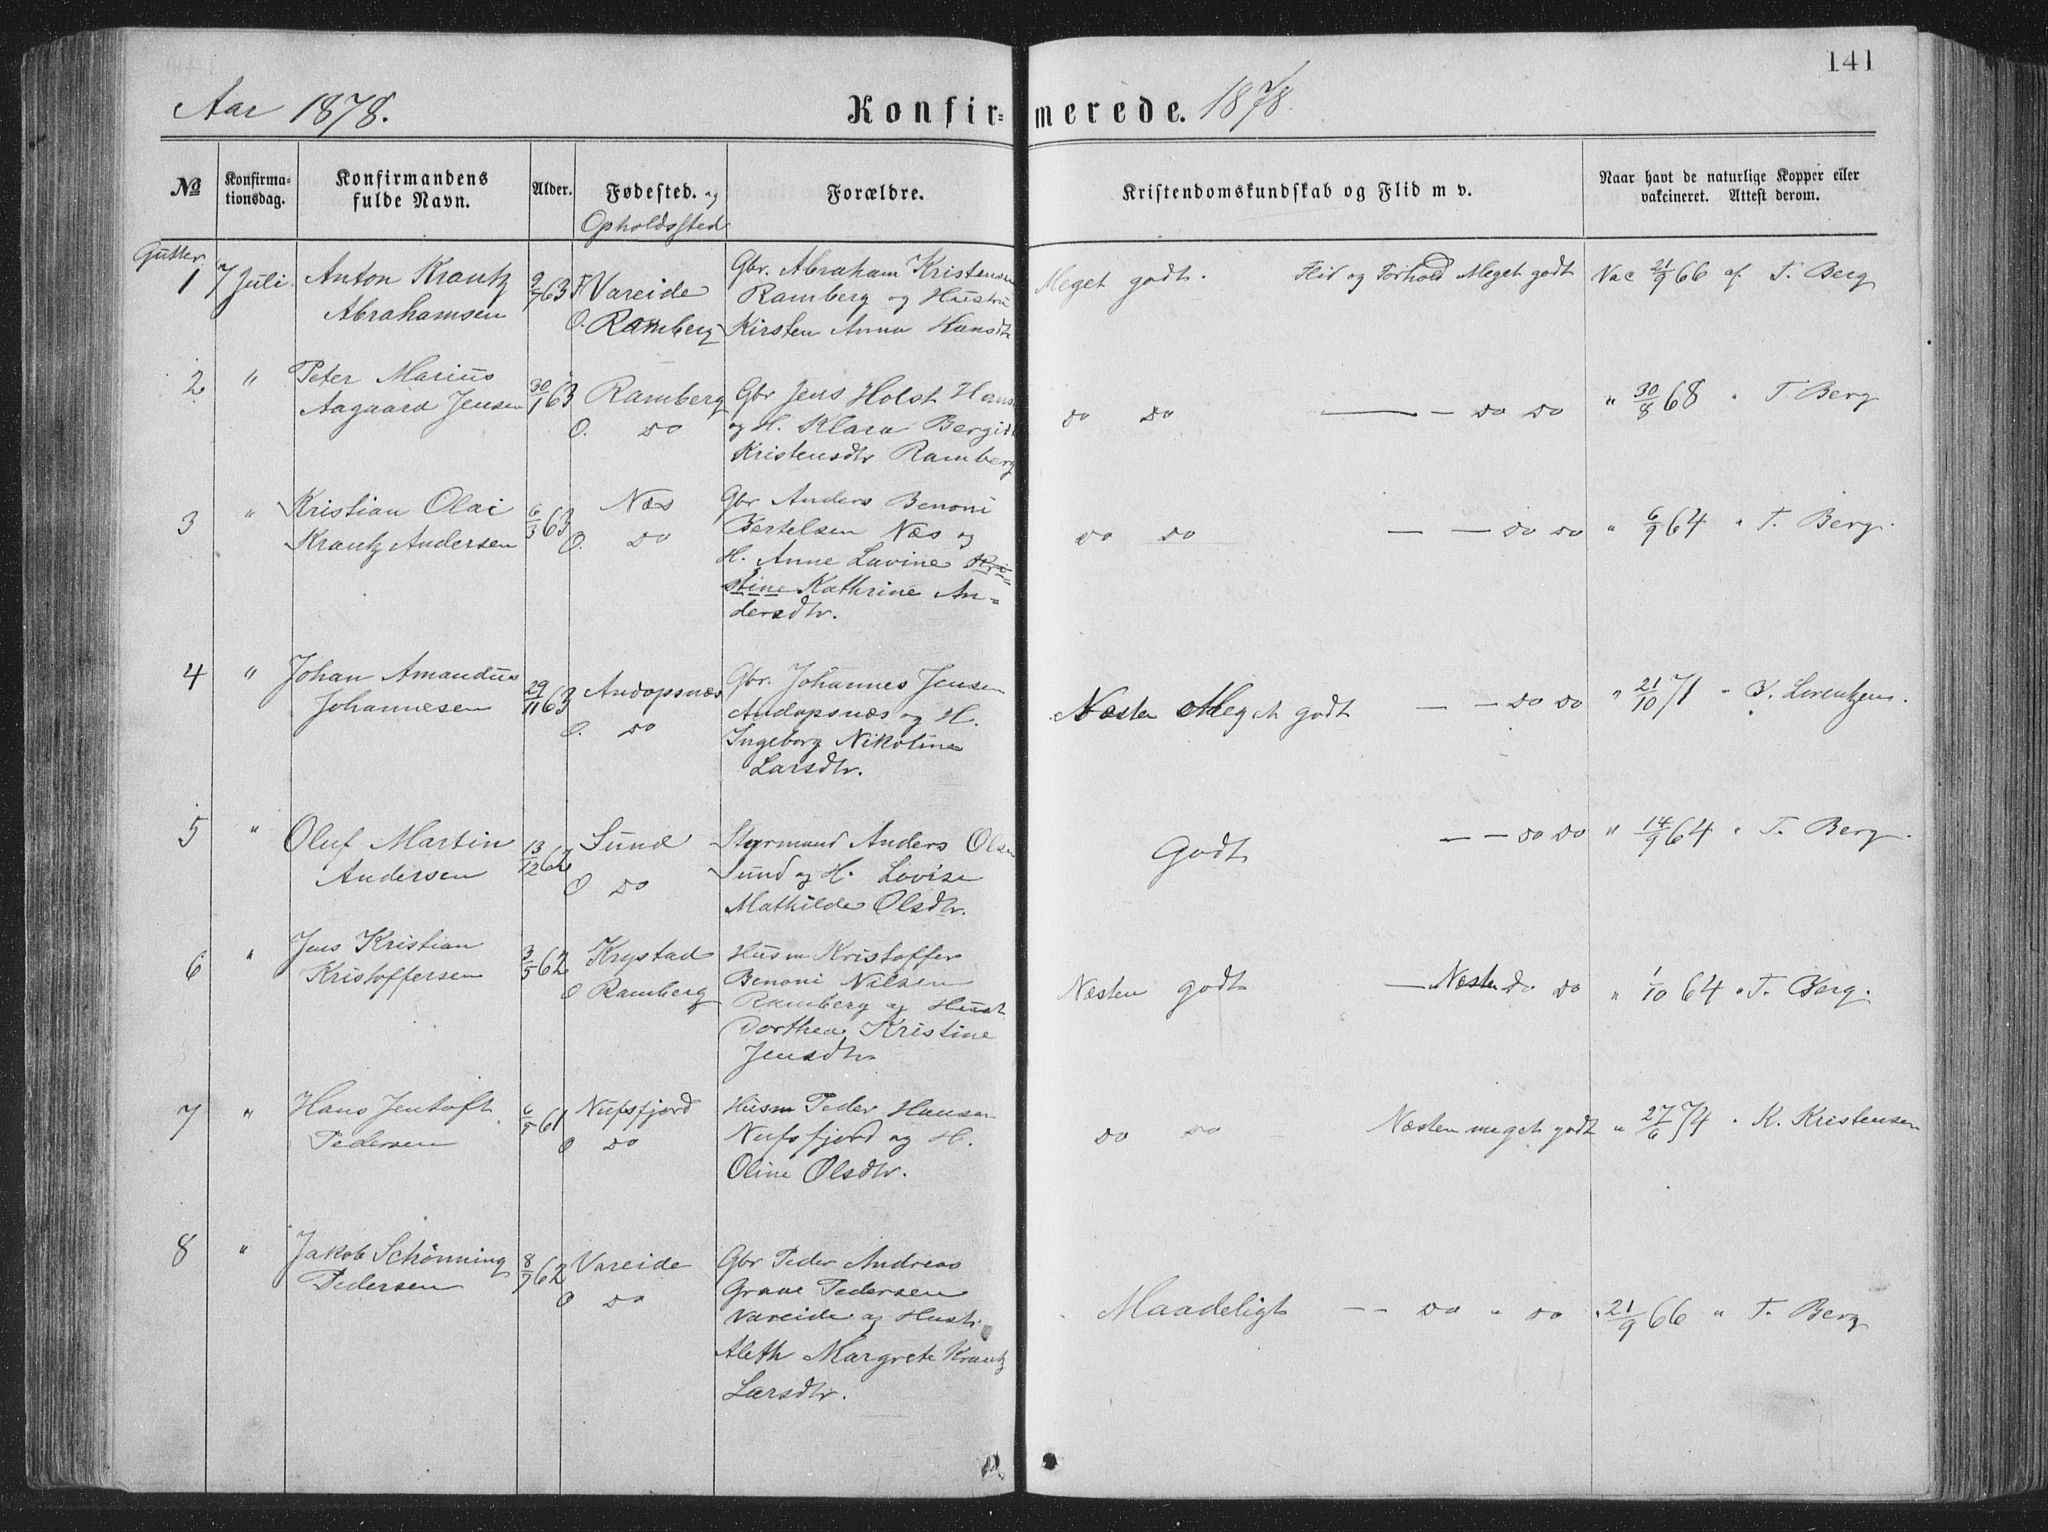 141
Aar 1878. Konfirmerede. 1878.
№ Konfirmationsdag. Konfirmandens fulde Navn. Alder. Fødested. og Opholdssted Forældre. Kristendomskundskab og Flid m v. Naar havt de naturlige Kopper eller vakcineret. Attest derom.
Gutter.
1 7 Juli Anton Krantz 9/7 63 F. Vareide Gbr. Abraham Kristensen Meget godt. Flid og Forhold Meget godt Vac 21/9 66 af T. Berg
Abrahamsen O. Ramberg Ramberg og Hustru
Kirsten Anna Hansdtr
2 " Peter Marius 30/1 63 Ramberg Gbr Jens Holst Hans do do — — do do " 30/8 68 " T Berg
Aagaard Jensen O. do og H. Klara Bergit
Kristensdtr Ramberg
3 " Kristian Olai 6/3 63 Næs Gbr Anders Benoni do do — — do do " 6/9 64 " T. Berg.
Krantz Andersen O. do Bertelsen Næs og
H. Anne Lavine Kri-
stine Kathrine An-
dersdtr.
4 " Johan Amandus 29/11 63 Andopsnæs Gbr. Johannes Jensen Næsten Meget godt — — do do " 21/10 71 " Lorentzen.
Johannesen O. do Andopsnæs og H.
Ingeborg Nikoline
Larsdtr.
5 " Oluf Martin 13/12 62 Sund Styrmand Anders Olsen Godt — — do do " 14/9 64 " T. Berg.
Andersen O do Sund og H. Lovise
Mathilde Olsdtr.
6 " Jens Kristian 3/5 62 Krystad Husm Kristoffer Næsten godt — Næsten do do " 1/10 64 " T. Berg.
Kristoffersen O Ramberg Benoni Nilsen
Ramberg og Hust
Dorthea Kristine
Jensdtr
7 " Hans Jentoft 61 Nufsfjord Husm Peder Hansen do do Næsten meget godt " 27/6 74 " K. Kristensen
Pedersen O do Nufsfjord og H.
Oline Olsdtr.
8 " Jakob Schönning 8/7 62 Vareide Gbr Peder Andreas Maadeligt — — do " do " 21/9 66 " T. Berg
Pedersen O do Grave Pedersen
Vareide og Hustr.
Aleth Margrete Krantz
Larsdtr.